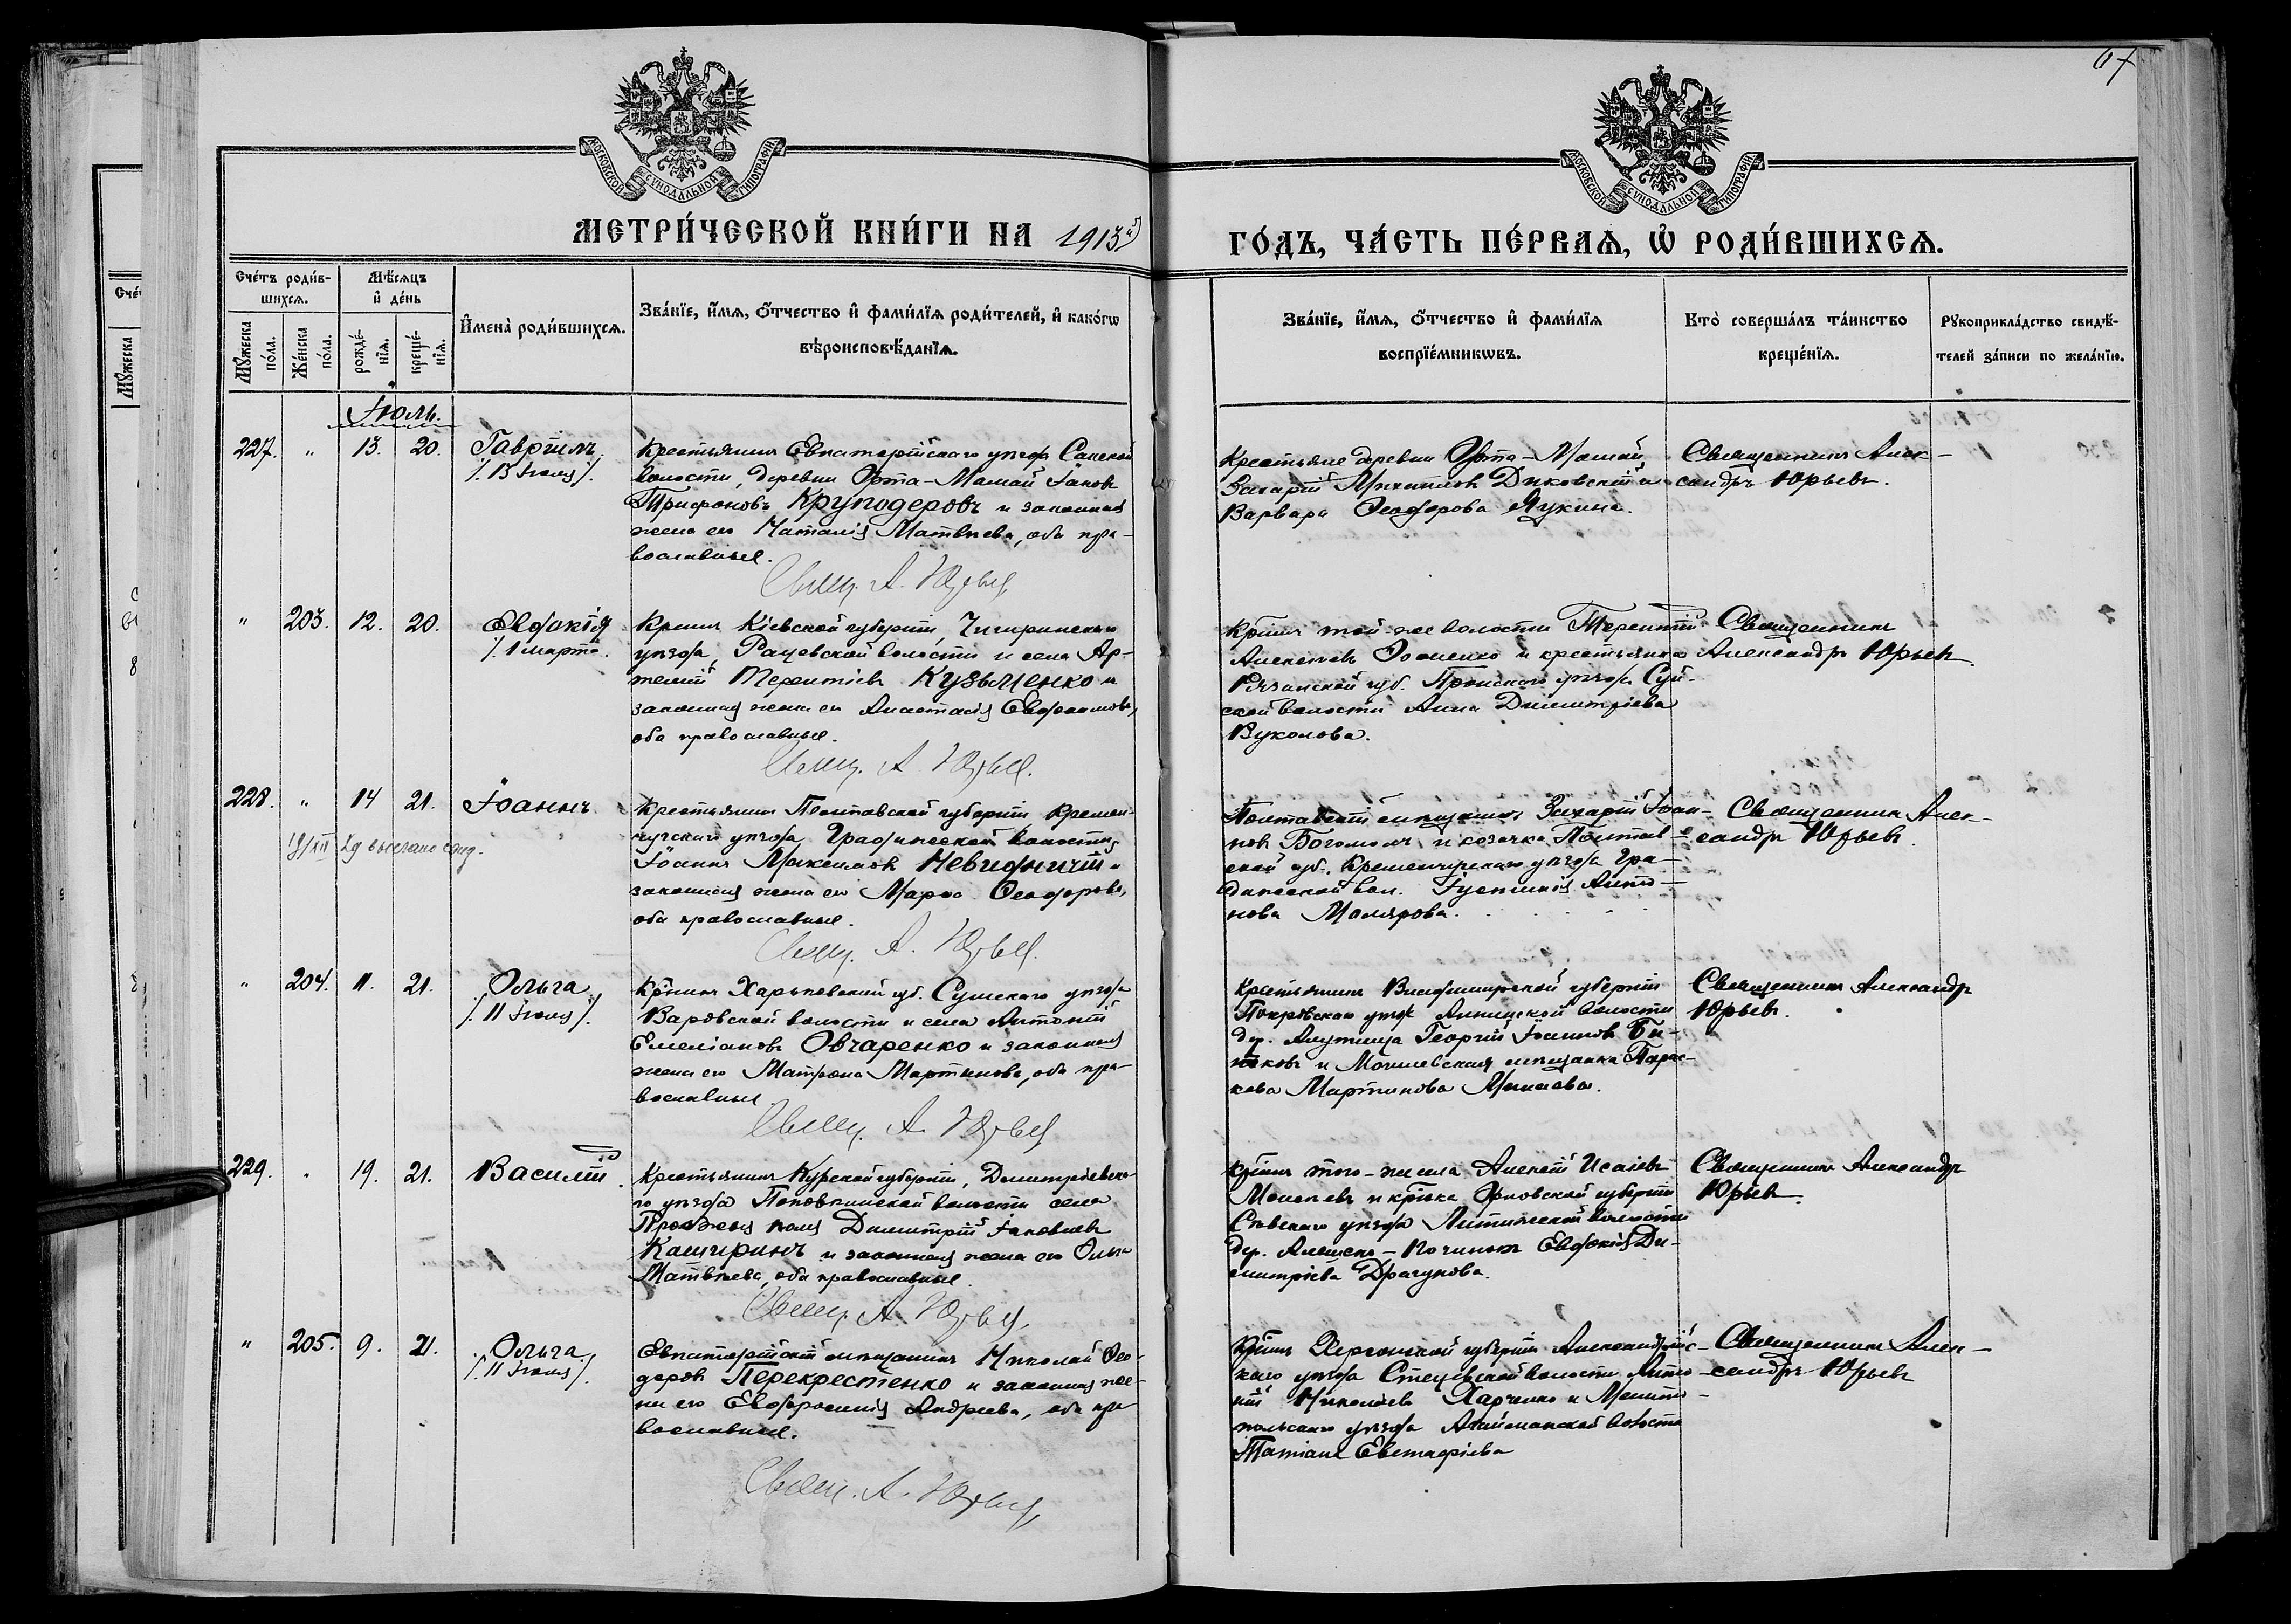 67
МОСКОВСКОЙ СѴНОДАЛЬНОЙ ТИПОГРАФІИ
МОСКОВСКОЙ СѴНОДАЛЬНОЙ ТИПОГРАФІИ
МЕТРИ́ЧЕСКОЙ КНИ́ГИ НА 1913й
ГО́ДЪ, ЧА́СТЬ ПЕ́РВАѦ, Ѡ҆ РОДИ́ВШИХСѦ.
Сче́тъ роди́в-
шихсѧ.
Мꙋ́жеска по́ла.
Же́нска по́ла.
Мѣ́сѧцъ
и҆ де́нь
рожде́-нїѧ.
креще́-нїѧ.
И҆мена̀ роди́вшихсѧ.
Зва́нїе, и҆́мѧ, ѻ҆́тчество и҆ фами́лїѧ роди́телей, и҆ како́гѡ
вѣроисповѣ́данїѧ.
Зва́нїе, и҆́мѧ, ѻ҆́тчество и҆ фами́лїѧ
воспрїе́мникѡвъ.
Кто̀ соверша́лъ та́инство
креще́нїѧ.
Рꙋкоприкла́дство свидѣ́-
телей за́писи по жела́нїю.
Іюль.
227. " 13. 20. Гавріилъ
/. 13 Іюля /.
Крестьянинъ Евпаторійскаго уѣзда Сакской
волости, деревни Орта-Мамай Іаковъ
Трифоновъ Круподеровъ и законная
жена его Наталія Матвѣева, оба пра-
вославные.
Свящ. А. Юрьевъ
Крестьяне деревни Орта-Мамай
Захарій Михаиловъ Диковскій и
Варвара Ѳеодорова Щукина.
Священникъ Алек-
сандръ Юрьевъ.
" 203. 12. 20. Евдокія
/. 1 марта.
Кр-нинъ Кіевской губерніи, Чигиринскаго
уѣзда Рацевской волости и села Ар-
темій Терентіевъ Кузьменко и
законная жена его Анастасія Евдокимова,
оба православные.
Свящ. А. Юрьевъ.
Кр-нинъ той же волости Терентій
Алексѣевъ и крестьянка
Рязанской губ. Пронскаго уѣзда
ской волости Анна Димитріева
Вуколова.
Священникъ
Александръ Юрьевъ.
228. " 14 21. Іоаннъ
Крестьянинъ Полтавской губерніи Кремен-
чугскаго уѣзда Градижской волости
Іоаннъ Максимовъ Невидничій и
законная жена его Марѳа Ѳеодорова,
оба православные.
Свящ. А. Юрьевъ.
Полтавскій мѣщанинъ Захарій Іоан-
новъ Богомолъ и козачка Полтав-
ской губ. Кременчугскаго уѣзда Гра-
дижской вол. Іустинія Анто-
нова Молярова.
Священникъ Алек-
сандръ Юрьевъ.
" 204. 11. 21. Ольга
/. 11 Іюля /.
Кр-нинъ Харьковской губ. Сумскаго уѣзда
волости и села Антоній
Емеліановъ Овчаренко и законная
жена его Матрона Мартинова, оба пра-
вославные
Свящ. А. Юрьевъ
Крестьянинъ Владимирской губерніи
Покровскаго уѣзда волости
дер. Георгій Іоанновъ Би-
и Могилевская мѣщанка Парас-
кева Мартинова
Священникъ Александръ
Юрьевъ.
229. " 19. 21. Василій.
Крестьянинъ Курской губерніи, Димитріевска-
го уѣзда волости села
Димитрій Іаковлевъ
Кашкиринъ и законная жена его Ольга
Матвѣева, оба православные.
Свящ. А. Юрьевъ.
Кр-нинъ того-же села Алексій Исаіевъ
и кр-нка Орловской губерніи
Сѣвскаго уѣзда волости
дер. Евдокія Ди-
митріева Драгунова.
Священникъ Александръ
Юрьевъ.
" 205. 9. 21. Ольга
/. 11 Іюля /.
Евпаторійскій мѣщанинъ Николай Ѳео-
доровъ Перекрестенко и законная же-
на его Евфросинія Андреева, оба пра-
вославные.
Свящ. А. Юрьевъ
Кр-нинъ Херсонской губерніи Александрійс-
каго уѣзда Стецовской волости Анто-
ній Николаевъ Харченко и Мелито-
польскаго уѣзда Агайманской волости
Татіана Евстафіева
Священникъ Алек-
сандръ Юрьевъ